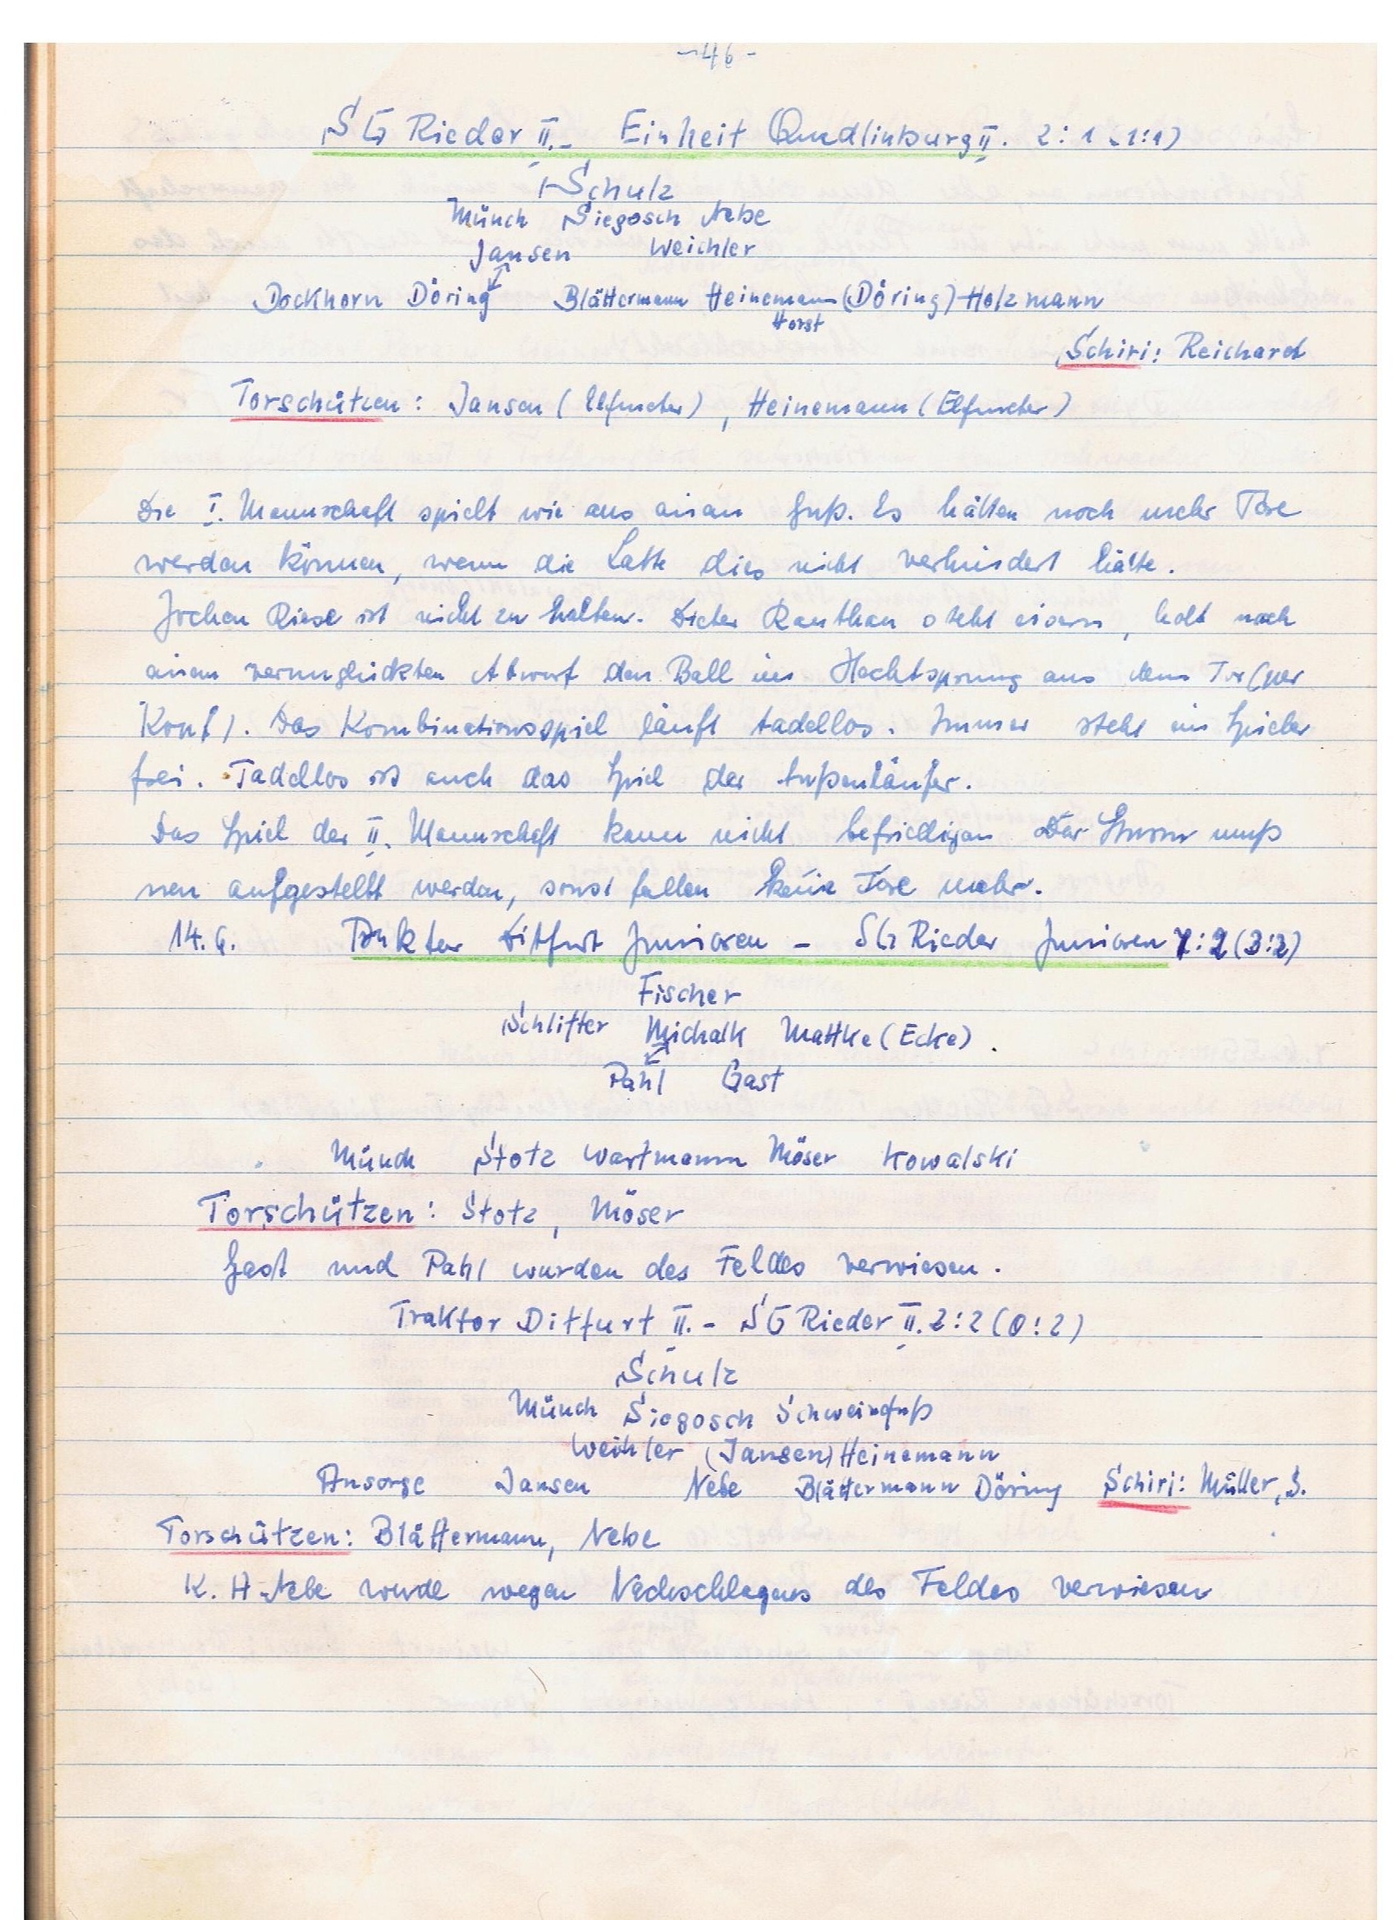 -46-
SG Rieder II. - Einheit Quedlinburg II. 2:1 (1:1)
Schulz
Münch Siegosch Nebe
Jansen Weichler
Dockhorn Döring Blättermann Heinemann (Döring) Holzmann
Horst
Schiri: Reichard
Torschützen: Jansen (Elfmeter), Heinemann (Elfmeter)
Die I. Mannschaft spielt wie aus einem Guß. Es hätten noch mehr Tore
werden können, wenn die Latte dies nicht verhindert hätte.
Jochen Riese ist nicht zu halten. Dieter Ranthan steht eisern, holt nach
einem verunglückten Abwurf den Ball im Hechtsprung aus dem Tor (per
Kopf). Das Kombinationsspiel läuft tadellos. Immer steht ein Spieler
frei. Tadellos ist auch das Spiel der Außenläufer.
Das Spiel der II. Mannschaft kann nicht befriedigen. Der Sturm muß
neu aufgestellt werden, sonst fallen keine Tore mehr.
14.6. Traktor Ditfurt Junioren - SG Rieder Junioren :2 (3:2)
Fischer
Schlifter Michalk Mattke (Ecke)
Pahl Gast
Münch Stotz Wartmann Möser Kowalski
Torschützen: Stotz, Möser
Gast und Pahl wurden des Feldes verwiesen.
Traktor Ditfurt II. - SG Rieder II. 2:2 (0:2)
Schulz
Münch Siegosch Schweinefuß
Weichler (Jansen) Heinemann
Ansorge Jansen Nebe Blättermann Döring Schiri: Müller, S.
Torschützen: Blättermann, Nebe
K. H. Nebe wurde wegen Nachschlagens des Feldes verwiesen